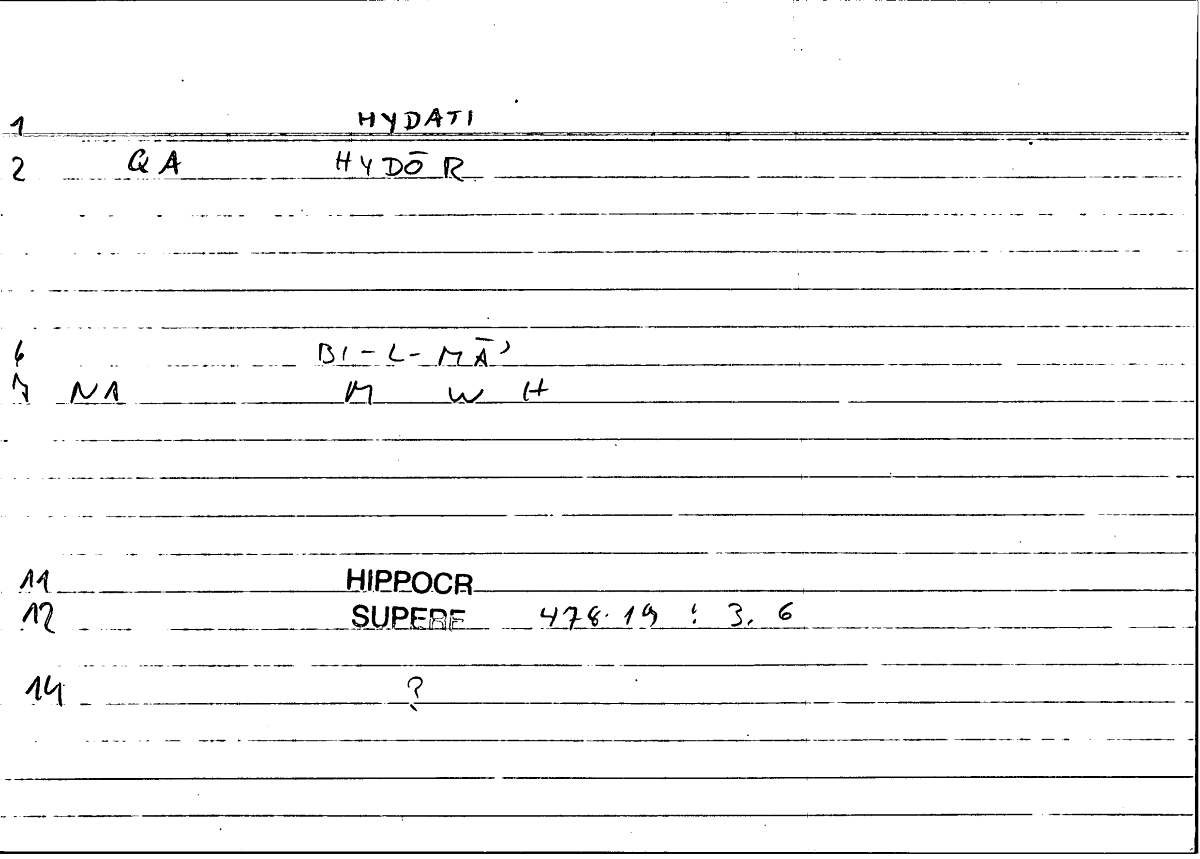 1 HYDATI
2 QA HYDŌR
6 BI-L-MĀ'
7 NA M W H
11 HIPPOCR
12 SUPERF 478.19 : 3, 6
14 ?